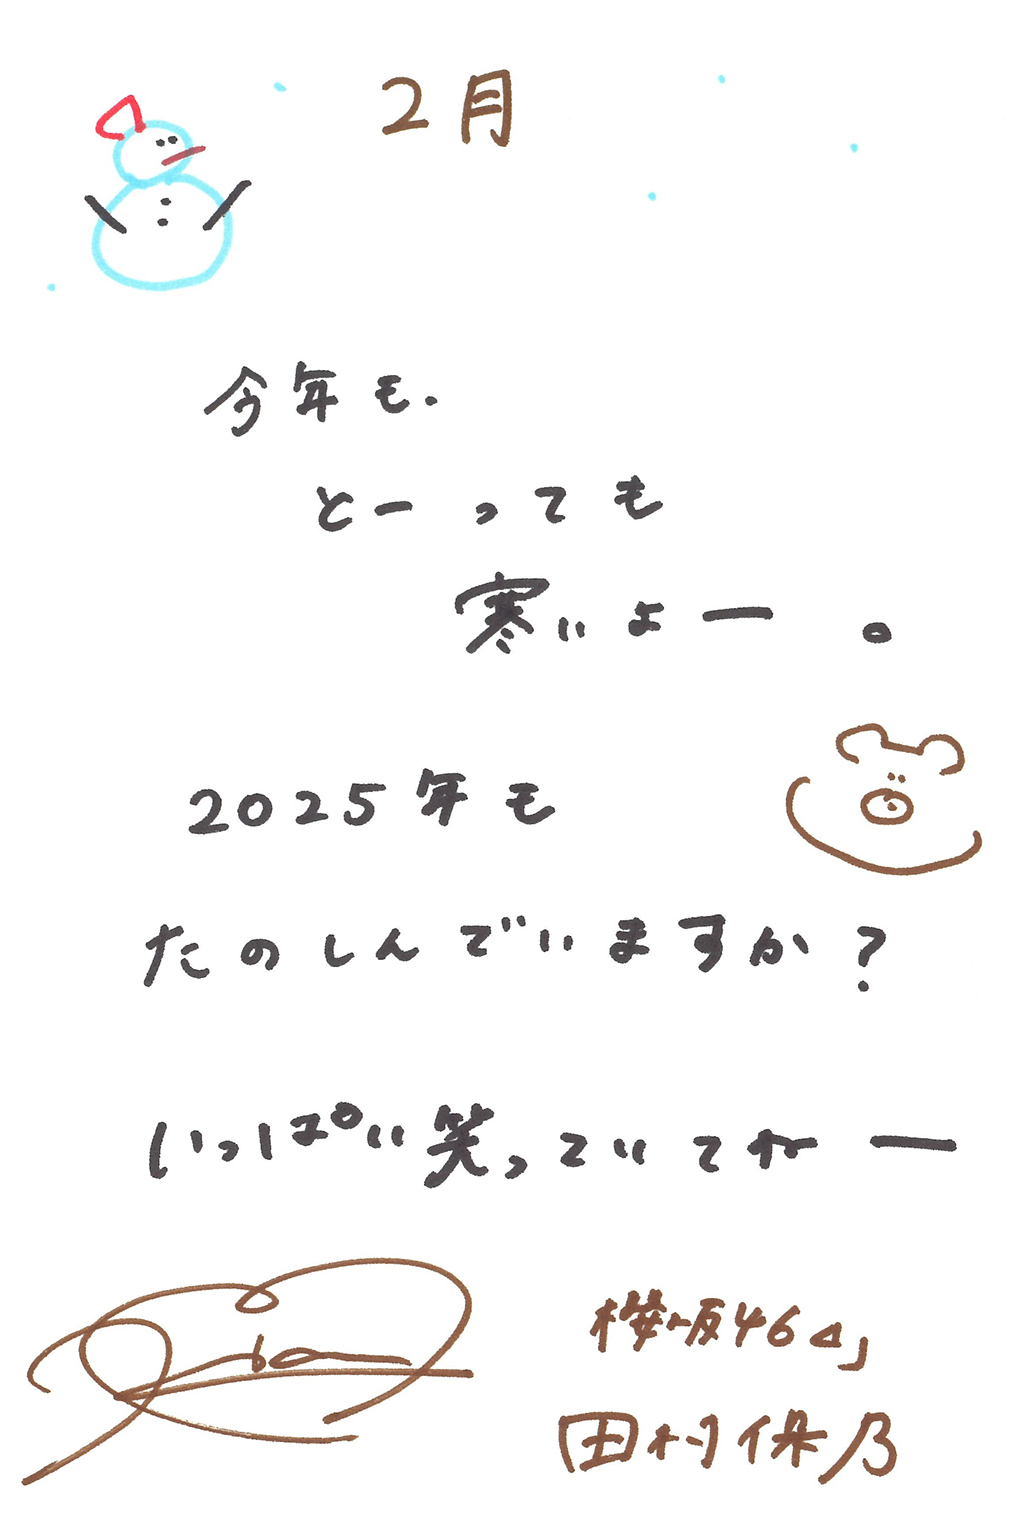 2月
今年も.
とーっても
寒いよー。
2025年も
たのしんでいますか?
いっぱい笑っていてねー
櫻坂46⊿」
田村保乃